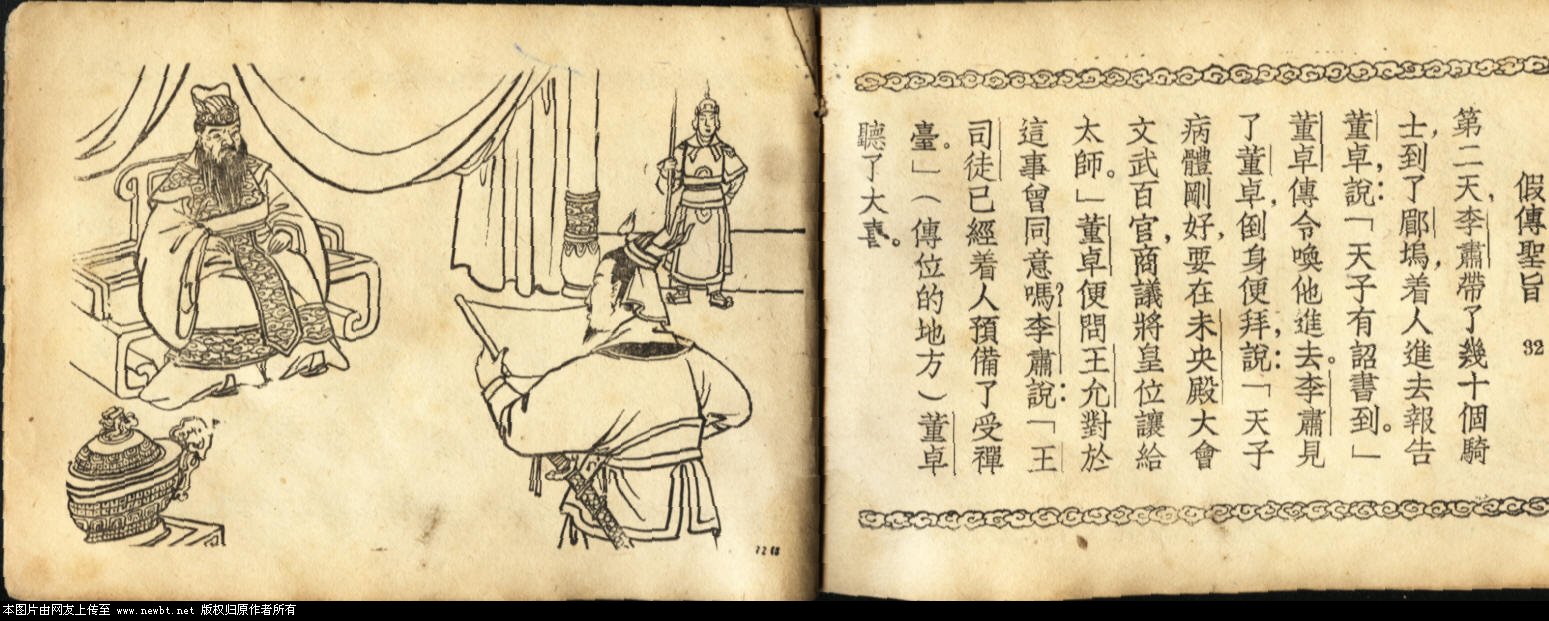 假傳聖旨 32
第二天，李肅帶了幾十個騎
士，到了郿塢，着人進去報告
董卓，說：「天子有詔書到。」
董卓傳令喚他進去。李肅見
了董卓，倒身便拜，說：「天子
病體剛好，要在未央殿大會
文武百官，商議將皇位讓給
太師。」董卓便問王允對於
這事曾同意嗎？李肅說：「王
司徒已經着人預備了受禪
臺。」（傳位的地方）董卓
聽了大喜。
本图片由网友上传至 www.newbt.net 版权归原作者所有